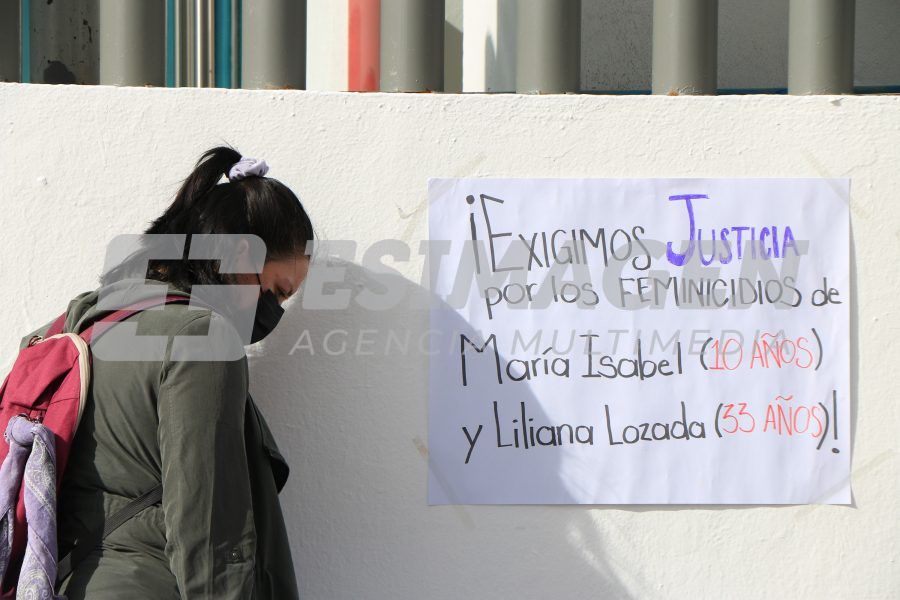 ¡EXIGIMOS JUSTICIA
por los FEMINICIDIOS de
María Isabel (10 AÑOS)
y Liliana Lozada (33 AÑOS)!
ESIMAGEN
AGENCIA MULTIMEDIA